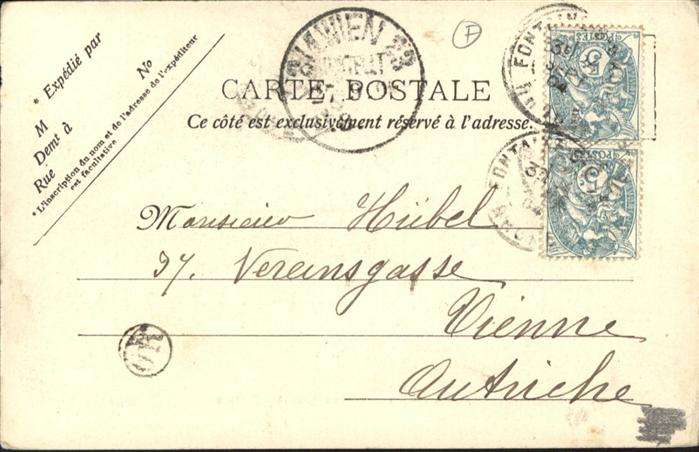 * Expédié par
M No
Demt à
Rue
* L'inscription du nom et de l'adresse de l'expéditeur
est facultative
WIEN
F
CARTE POSTALE
Ce côté est exclusivement réservé à l'adresse.
POSTES
Monsieur Hübel
37. Vereinsgasse
Vienne
Autriche